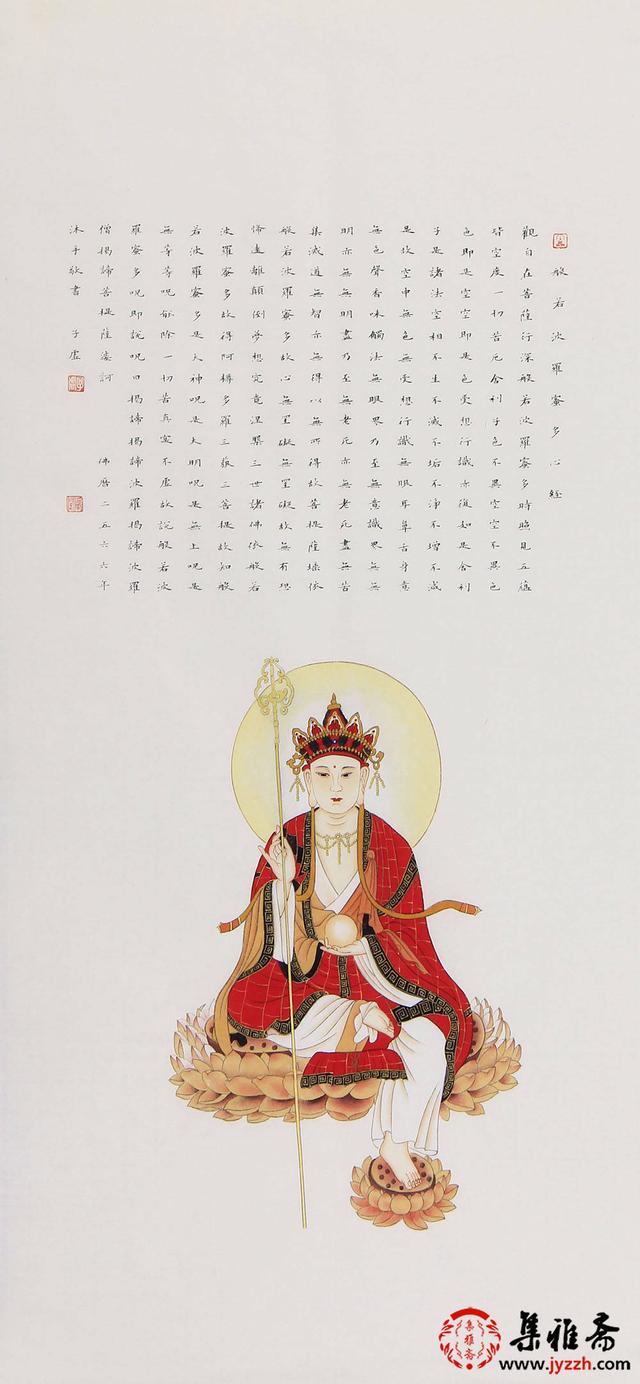 般若波羅蜜多心經
觀自在菩薩行深般若波羅蜜多時照見五蘊
皆空度一切苦厄舍利子色不異空空不異色
色即是空空即是色受想行識亦復如是舍利
子是諸法空相不生不滅不垢不淨不增不減
是故空中無色無受想行識無眼耳鼻舌身意
無色聲香味觸法無眼界乃至無意識界無無
明亦無無明盡乃至無老死亦無老死盡無苦
集滅道無智亦無得以無所得故菩提薩埵依
般若波羅蜜多故心無罣礙無罣礙故無有恐
怖遠離顛倒夢想究竟涅槃三世諸佛依般若
波羅蜜多故得阿耨多羅三藐三菩提故知般
若波羅蜜多是大神呪是大明呪是無上呪是
無等等呪能除一切苦真實不虛故說般若波
羅蜜多呪即說呪曰揭諦揭諦波羅揭諦波羅
僧揭諦菩提薩婆訶 佛曆二五六六年
沐手敬書 子虛
集雅斋
集雅斋
www.jyzzh.com